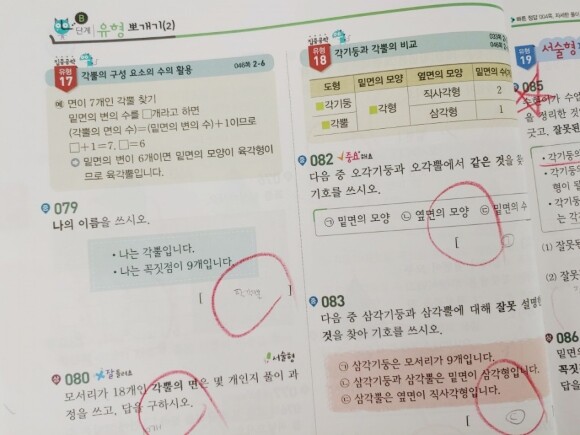 B단계 유형 뽀개기(2)
유형 17 각뿔의 구성 요소의 수의 활용 046쪽 2-6
예 면이 7개인 각뿔 찾기
밑면의 변의 수를 □개라고 하면
(각뿔의 면의 수)=(밑면의 변의 수)+1이므로
□+1=7, □=6
밑면의 변이 6개이면 밑면의 모양이 육각형이
므로 육각뿔입니다.
079
나의 이름을 쓰시오.
• 나는 각뿔입니다.
• 나는 꼭짓점이 9개입니다.
[
서술형
080
모서리가 18개인 각뿔의 면은 몇 개인지 풀이 과
정을 쓰고, 답을 구하시오.
유형 18 각기둥과 각뿔의 비교
도형 밑면의 모양 옆면의 모양 밑면의 수
각기둥 각형 직사각형 2
각뿔 삼각형 1
082 중요
다음 중 오각기둥과 오각뿔에서 같은 것을
기호를 쓰시오.
㉠ 밑면의 모양 ㉡ 옆면의 모양 ㉢ 밑면의 수
[
083
다음 중 삼각기둥과 삼각뿔에 대해 잘못 설명한
것을 찾아 기호를 쓰시오.
㉠ 삼각기둥은 모서리가 9개입니다.
㉡ 삼각기둥과 삼각뿔은 밑면이 삼각형입니다.
㉢ 삼각뿔은 옆면이 직사각형입니다.
[ ㉢
빠른 정답
유형 19 서술형
085
을 정리한 것
긋고, 잘못된
• 각기둥의
형이
• 각기둥
는 각
(1) 잘못된
(2) 잘못
086
밑면의
꼭짓
답을